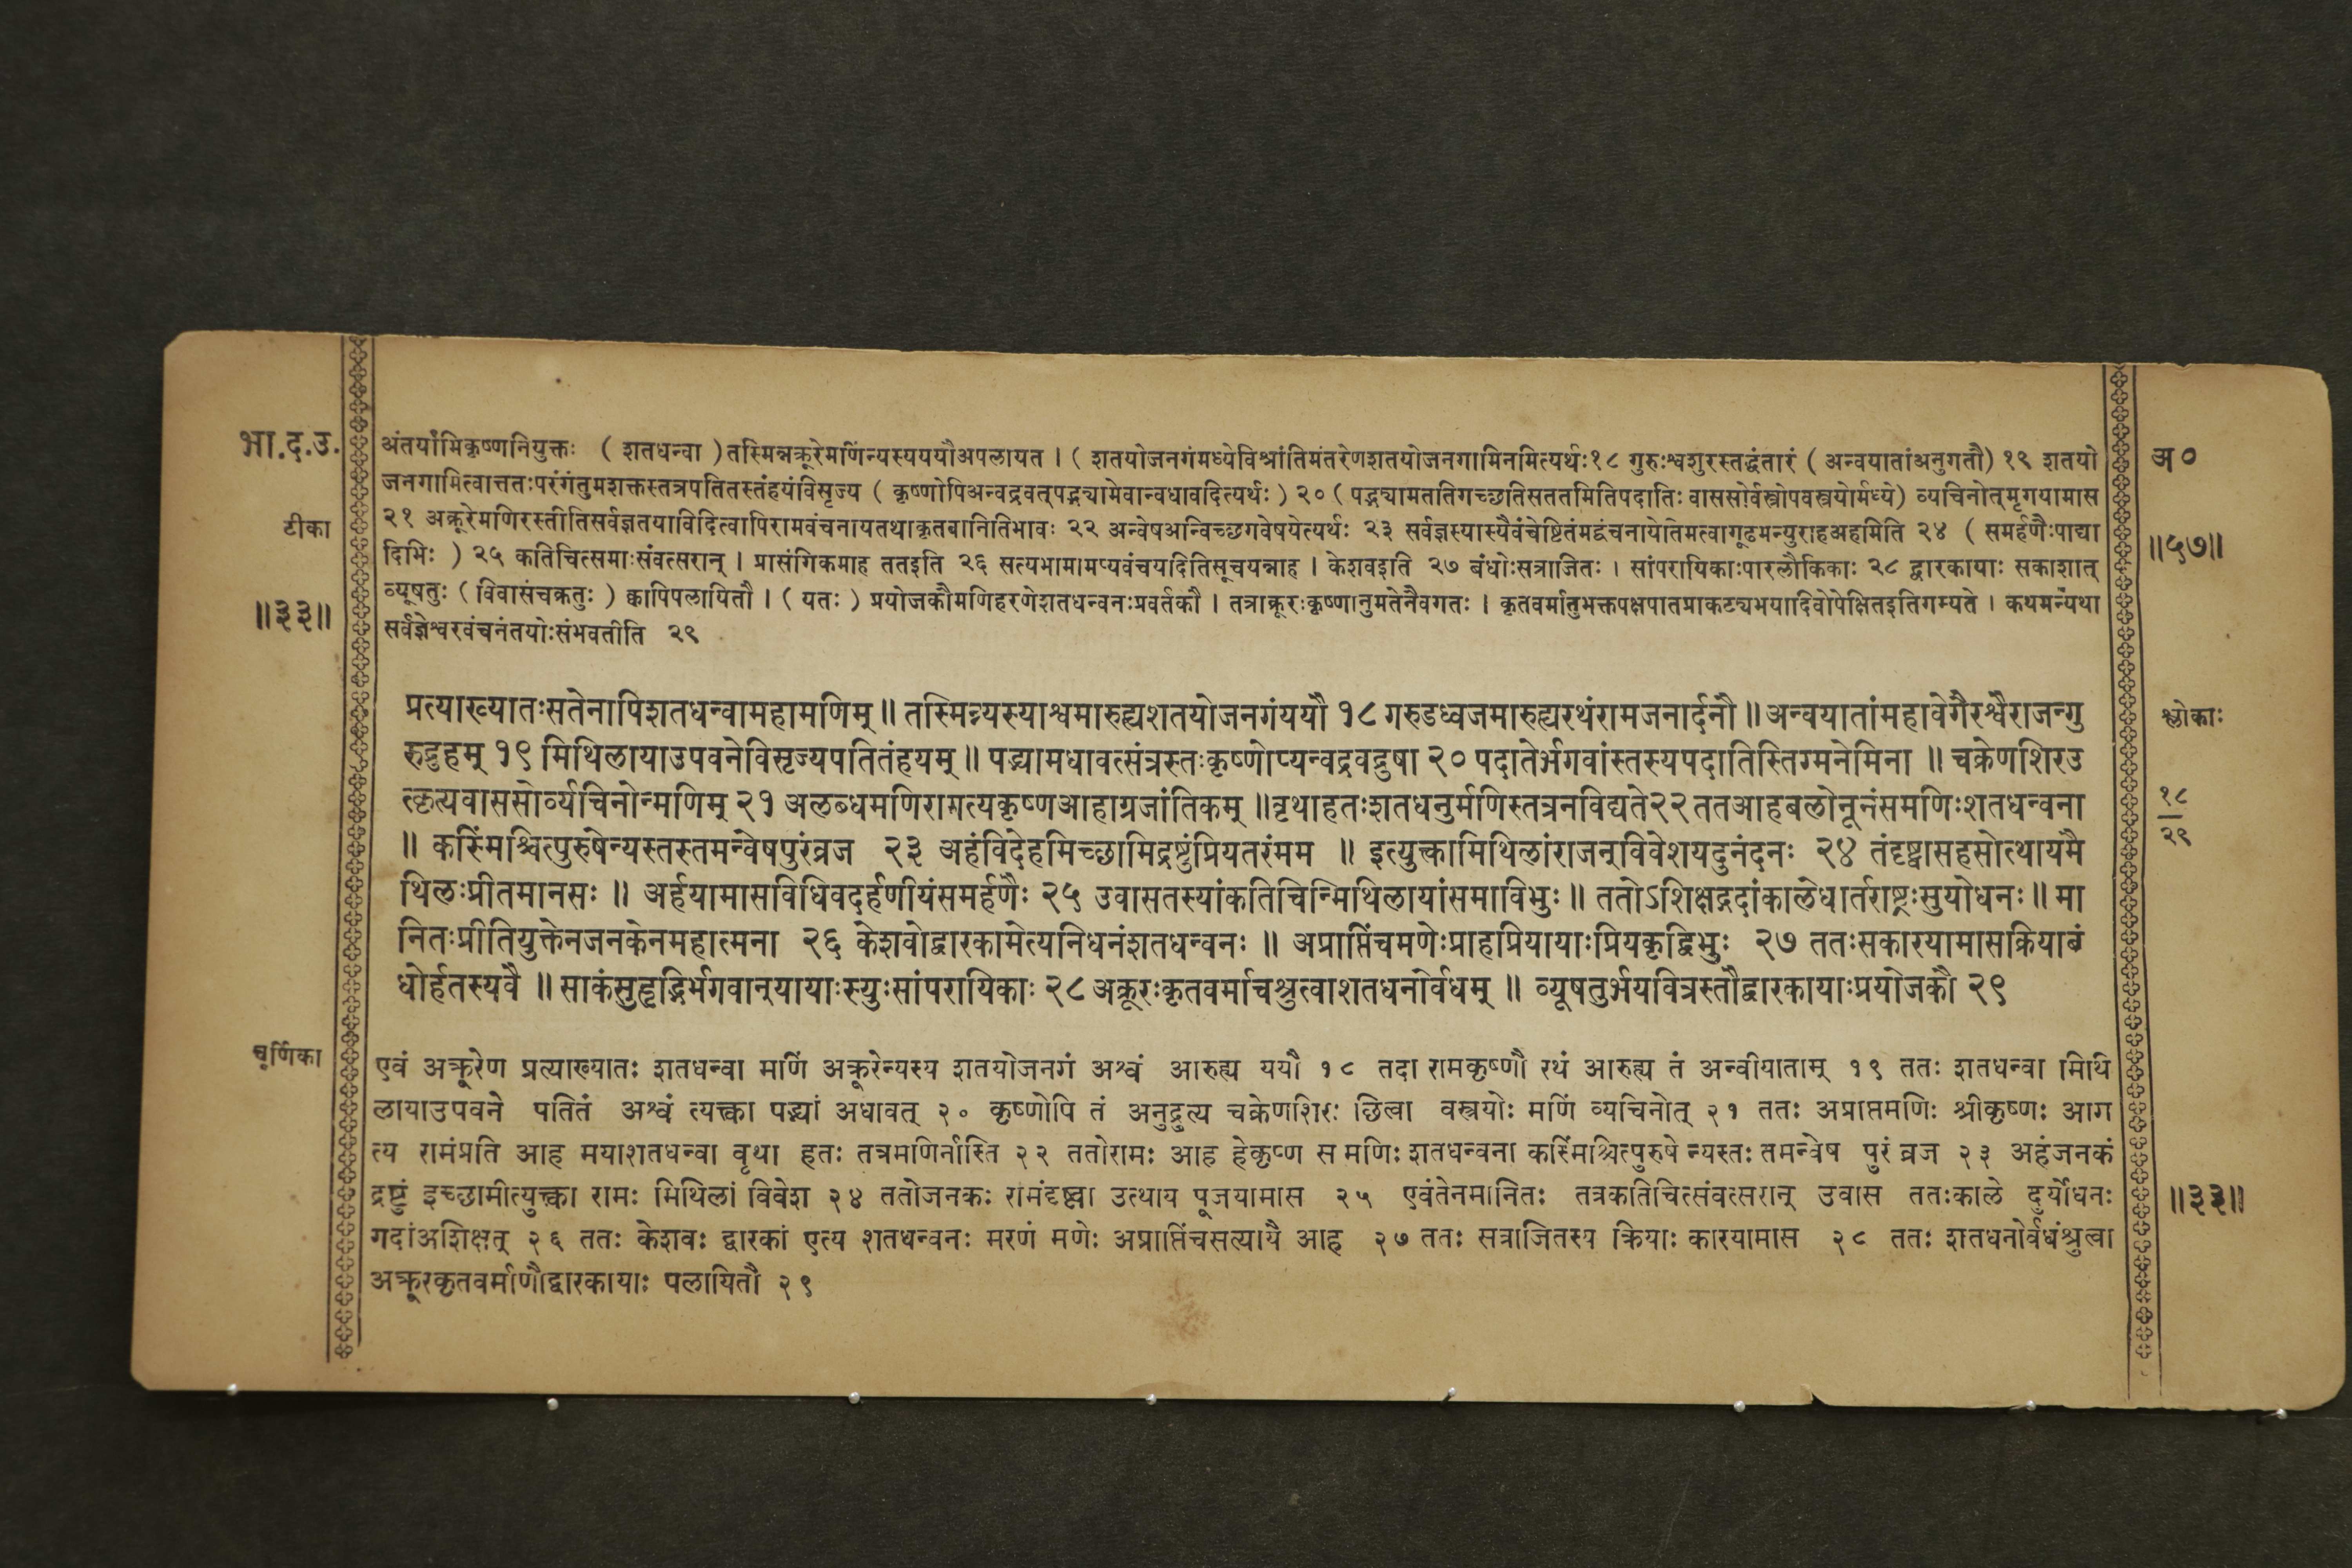 भा.द.उ.
टीका
॥३३॥
अंतर्यामिकृष्णनियुक्तः ( शतधन्वा )तस्मिन्नक्रूरेमणिंन्यस्यययौअपलायत । ( शतयोजनगंमध्येविश्रांतिमंतरेणशतयोजनगामिनमित्यर्थः१८ गुरुःश्वशुरस्तद्धंतारं ( अन्वयातांअनुगतौ) १९ शतयो
जनगामित्वात्ततःपरंगंतुमशक्तस्तत्रपतितस्तंहयंविसृज्य ( कृष्णोपिअन्वद्रवत्पद्भ्यामेवान्वधावदित्यर्थः ) २० ( पद्भ्यामततिगच्छतिसततमितिपदातिः वाससोर्वस्त्रोपवस्त्रयोर्मध्ये) व्यचिनोत्मृगयामास
२१ अक्रूरेमणिरस्तीतिसर्वज्ञतयाविदित्वापिरामवंचनायतथाकृतवानितिभावः २२ अन्वेषअन्विच्छगवेषयेत्यर्थः २३ सर्वज्ञस्यास्यैवंचेष्टितंमद्वंचनायेतिमत्वागूढमन्युराहअहमिति २४ ( समर्हणैःपाद्या
दिभिः ) २५ कतिचित्समाःसंवत्सरान् । प्रासंगिकमाह ततइति २६ सत्यभामामप्यवंचयदितिसूचयन्नाह । केशवइति २७ बंधोःसत्राजितः । सांपरायिकाःपारलौकिकाः २८ द्वारकायाः सकाशात्
व्यूषतुः ( विवासंचक्रतुः ) क्वापिपलायितौ । ( यतः ) प्रयोजकौमणिहरणेशतधन्वनःप्रवर्तकौ । तत्राक्रूरःकृष्णानुमतेनैवगतः । कृतवर्मातुभक्तपक्षपातप्राकट्यभयादिवोपेक्षितइतिगम्यते । कथमन्यथा
सर्वज्ञेश्वरवंचनंतयोःसंभवतीति २९
प्रत्याख्यातःसतेनापिशतधन्वामहामणिम् ॥ तस्मिन्न्यस्याश्वमारुह्यशतयोजनगंययौ १८ गरुडध्वजमारुह्यरथंरामजनार्दनौ ॥ अन्वयातांमहावेगैरश्वैराजन्गु
रुद्रुहम् १९ मिथिलायाउपवनेविसृज्यपतितंहयम् ॥ पद्भ्यामधावत्संत्रस्तःकृष्णोप्यन्वद्रवद्रुषा २० पदातेर्भगवांस्तस्यपदातिस्तिग्मनेमिना ॥ चक्रेणशिरउ
त्कृत्यवाससोर्व्यचिनोन्मणिम् २१ अलब्धमणिरागत्यकृष्णआहाग्रजांतिकम् ॥वृथाहतःशतधनुर्मणिस्तत्रनविद्यते२२ततआहबलोनूनंसमणिःशतधन्वना
॥ कस्मिंश्चित्पुरुषेन्यस्तस्तमन्वेषपुरंव्रज २३ अहंविदेहमिच्छामिद्रष्टुंप्रियतरंमम ॥ इत्युक्त्वामिथिलांराजन्विवेशयदुनंदनः २४ तंदृष्ट्वासहसोत्थायमै
थिलःप्रीतमानसः ॥ अर्हयामासविधिवदर्हणीयंसमर्हणैः २५ उवासतस्यांकतिचिन्मिथिलायांसमाविभुः ॥ ततोऽशिक्षद्गदांकालेधार्तराष्ट्रःसुयोधनः ॥ मा
नितःप्रीतियुक्तेनजनकेनमहात्मना २६ केशवोद्वारकामेत्यनिधनंशतधन्वनः ॥ अप्राप्तिंचमणेःप्राहप्रियायाःप्रियकृद्विभुः २७ ततःसकारयामासक्रियाबं
धोर्हतस्यवै ॥ साकंसुहृद्भिर्भगवान्यायाःस्युःसांपरायिकाः २८ अक्रूरःकृतवर्माचश्रुत्वाशतधनोर्वधम् ॥ व्यूषतुर्भयवित्रस्तौद्वारकायाःप्रयोजकौ २९
चूर्णिका
एवं अक्रूरेण प्रत्याख्यातः शतधन्वा मणिं अक्रूरेन्यस्य शतयोजनगं अश्वं आरुह्य ययौ १८ तदा रामकृष्णौ रथं आरुह्य तं अन्वीयाताम् १९ ततः शतधन्वा मिथि
लायाउपवने पतितं अश्वं त्यक्त्वा पद्भ्यां अधावत् २० कृष्णोपि तं अनुद्रुत्य चक्रेणशिरः छित्वा वस्त्रयोः मणिं व्यचिनोत् २१ ततः अप्राप्तमणिः श्रीकृष्णः आग
त्य रामंप्रति आह मयाशतधन्वा वृथा हतः तत्रमणिर्नास्ति २२ ततोरामः आह हेकृष्ण स मणिः शतधन्वना कस्मिंश्चित्पुरुषे न्यस्तः तमन्वेष पुरं व्रज २३ अहंजनकं
द्रष्टुं इच्छामीत्युक्त्वा रामः मिथिलां विवेश २४ ततोजनकः रामंदृष्ट्वा उत्थाय पूजयामास २५ एवंतेनमानितः तत्रकतिचित्संवत्सरान् उवास ततःकाले दुर्योधनः
गदांअशिक्षत् २६ ततः केशवः द्वारकां एत्य शतधन्वनः मरणं मणेः अप्राप्तिंचसत्यायै आह २७ ततः सत्राजितस्य क्रियाः कारयामास २८ ततः शतधनोर्वधंश्रुत्वा
अक्रूरकृतवर्माणौद्वारकायाः पलायितौ २९
अ०
॥५७॥
श्लोकाः
१८
२९
॥३३॥